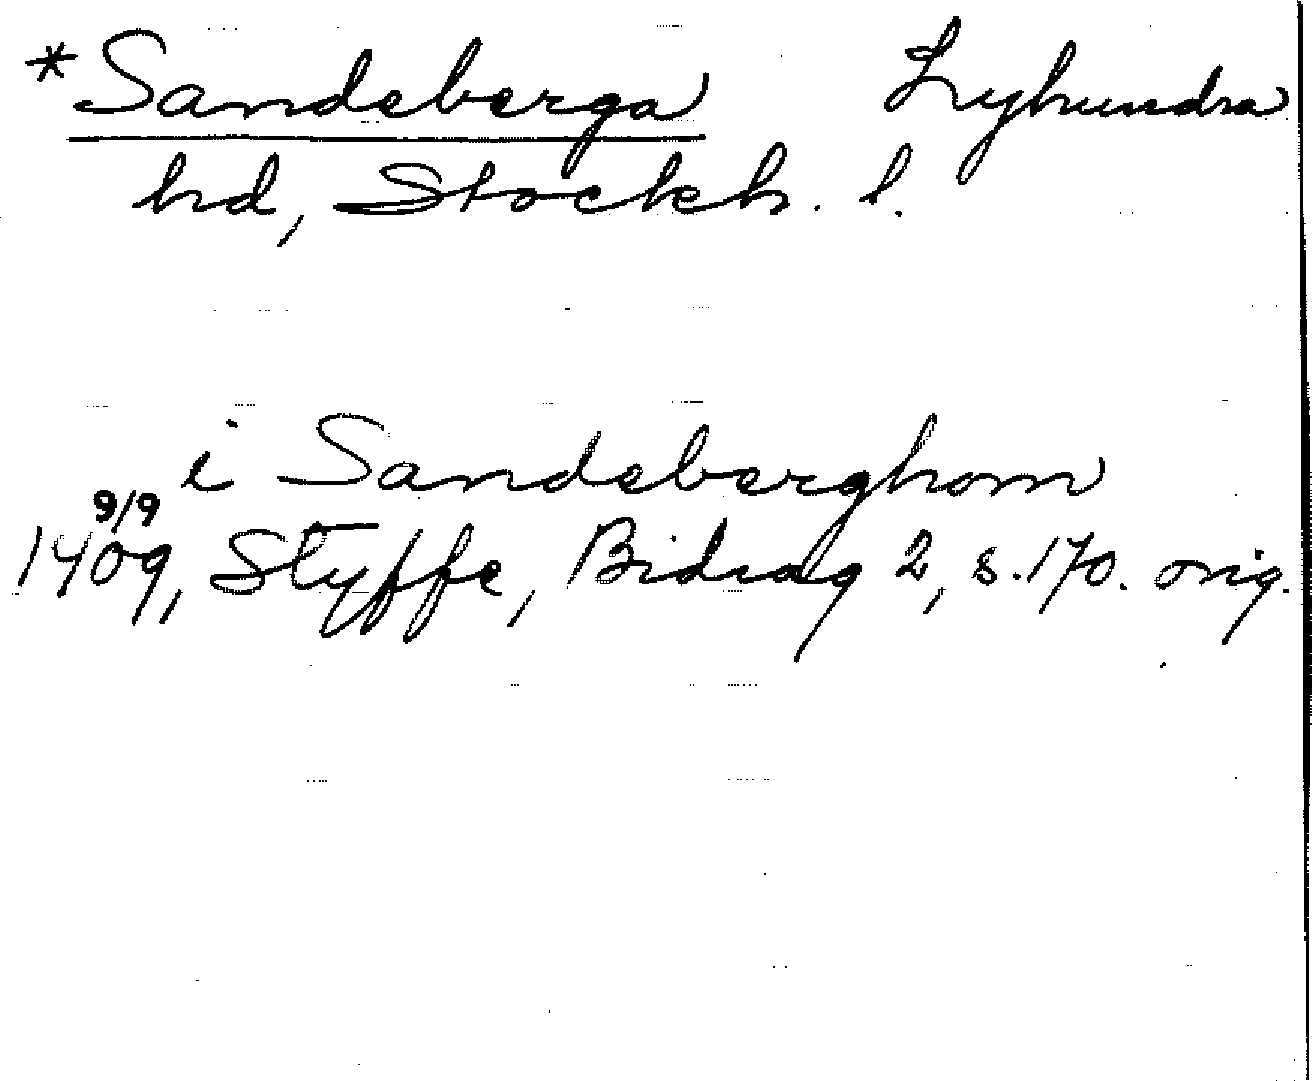 *Sandeberga Lyhundra
hd, Stockh. l.
i Sandeberghom
9/9
1409, Styffe, Bidrag 2, s. 170. orig.